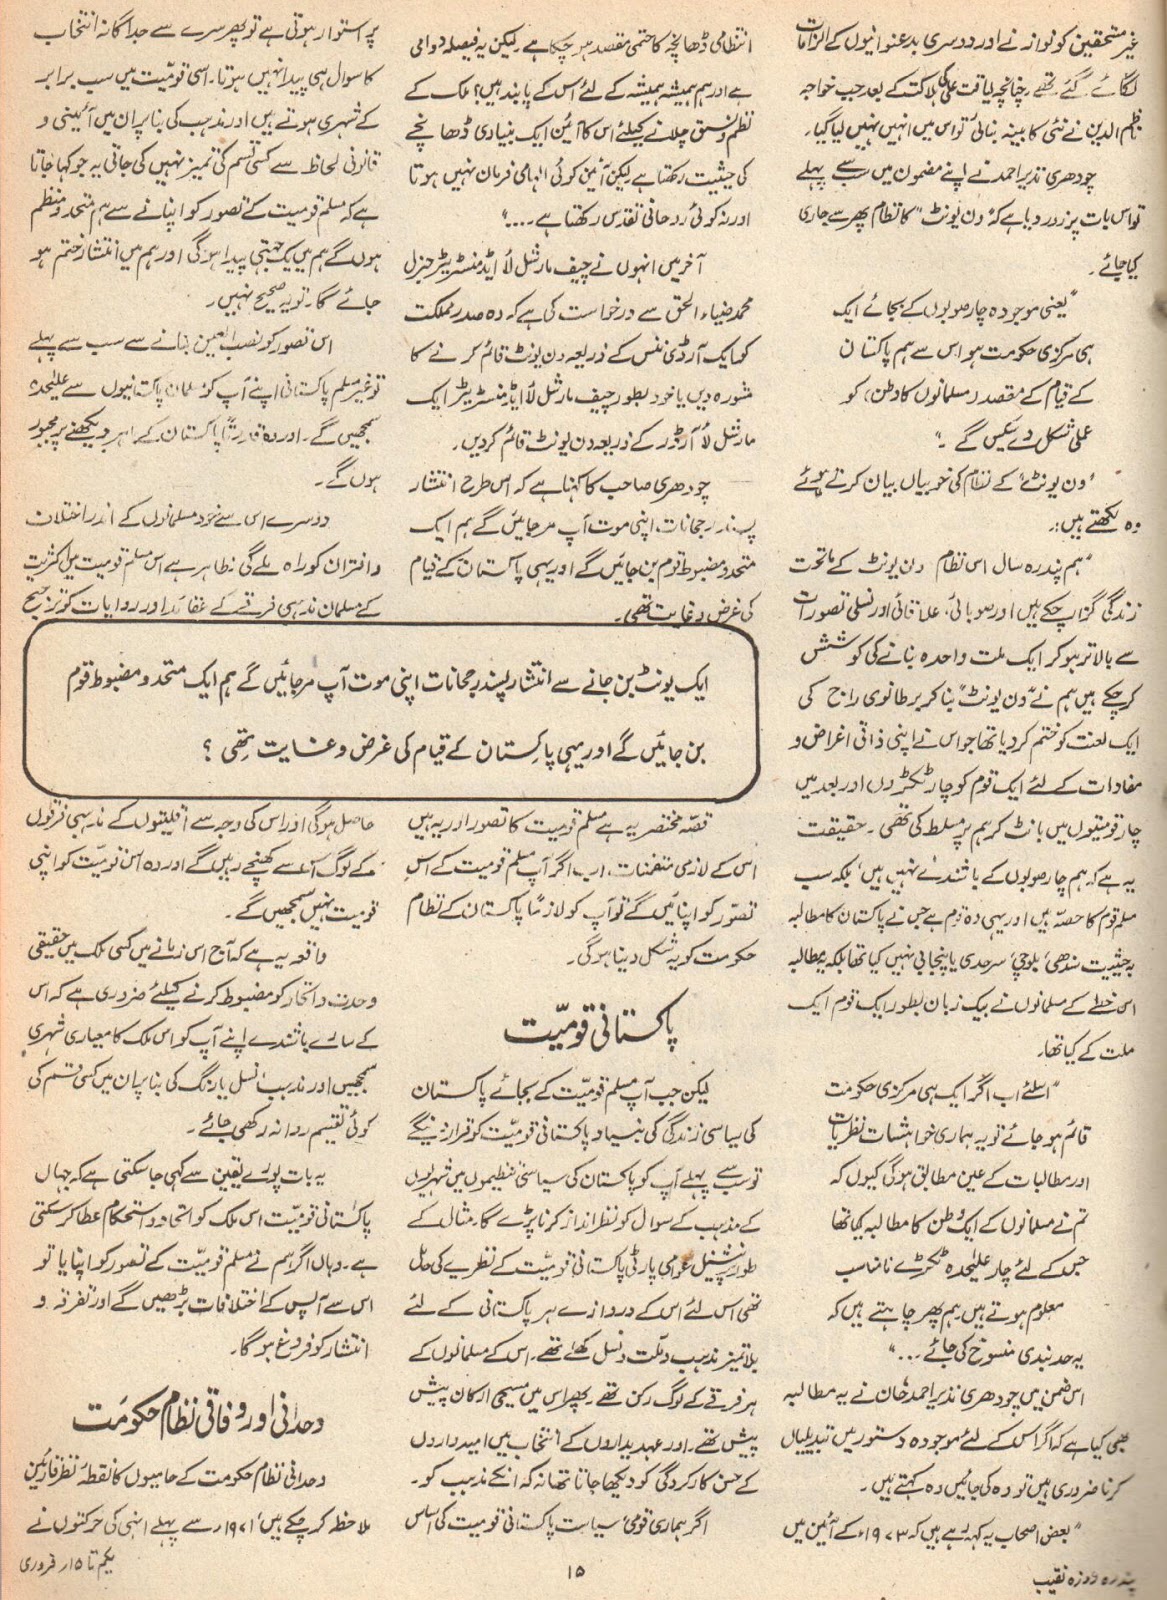 غیر مستحقین کو نوازنے اور دوسری بدعنوانیوں کے الزامات
لگائے گئے تھے چنانچہ لیاقت علی کی ہلاکت کے بعد جب خواجہ
ناظم الدین نے نئی کابینہ بنائی تو اس میں انہیں نہیں لیا گیا۔
چودھری نذیر احمد نے اپنے مضمون میں سب سے پہلے
تو اس بات پر زور دیا ہے کہ "ون یونٹ" کا نظام پھر سے جاری
کیا جائے۔
"یعنی موجودہ چار صوبوں کے بجائے ایک
ہی مرکزی حکومت ہو اس سے ہم پاکستان
کے قیام کے مقصد (مسلمانوں کا وطن) کو
عملی شکل دے سکیں گے۔"
"ون یونٹ" کے نظام کی خوبیاں بیان کرتے ہوئے
وہ لکھتے ہیں:۔
"ہم پندرہ سال اس نظام ون یونٹ کے ماتحت
زندگی گزار چکے ہیں اور صوبائی، علاقائی اور نسلی تصورات
سے بالاتر ہو کر ایک ملت واحدہ بنانے کی کوشش
کر چکے ہیں ہم نے "ون یونٹ" بنا کر برطانوی راج کی
ایک لعنت کو ختم کر دیا تھا جو اس نے اپنی ذاتی اغراض و
مفادات کے لئے ایک قوم کو چار ٹکڑوں اور بعد میں
چار قومیتوں میں بانٹ کر ہم پر مسلط کی تھی۔ حقیقت
یہ ہے کہ ہم چار صوبوں کے باشندے نہیں ہیں، بلکہ سب
مسلم قوم کا حصہ ہیں اور یہی وہ قوم ہے جس نے پاکستان کا مطالبہ
بہ حیثیت سندھی، بلوچی، سرحدی یا پنجابی نہیں کیا تھا بلکہ یہ مطالبہ
اس خطے کے مسلمانوں نے بیک زبان بطور ایک قوم ایک
ملت کے کیا تھا۔
"اسلئے اب اگر ایک ہی مرکزی حکومت
قائم ہو جائے تو یہ ہماری خواہشات نظریات
اور مطالبات کے عین مطابق ہوگی کیوں کہ
ہم نے مسلمانوں کے ایک وطن کا مطالبہ کیا تھا
جس کے لئے چار علیٰحدہ ٹکڑے نامناسب
معلوم ہوتے ہیں۔ ہم پھر چاہتے ہیں کہ
یہ حد بندی منسوخ کی جائے..."
اس ضمن میں چودھری نذیر احمد خان نے یہ مطالبہ
بھی کیا ہے کہ اگر اس کے لئے موجودہ دستور میں تبدیلیاں
کرنا ضروری ہیں تو وہ کی جائیں وہ کہتے ہیں۔
"بعض اصحاب یہ کہہ رہے ہیں کہ ۱۹۷۳ء کے آئین میں
انتظامی ڈھانچہ کا حتمی مقصد ہو چکا ہے۔ لیکن یہ فیصلہ دوامی
ہے اور ہم ہمیشہ ہمیشہ کے لئے اس کے پابند ہیں؟ ملک کے
نظم و نسق چلانے کیلئے اس کا آئین ایک بنیادی ڈھانچے
کی حیثیت رکھتا ہے لیکن آئین کوئی الہامی فرمان نہیں ہوتا
اور نہ کوئی روحانی تقدس رکھتا ہے...."
آخر میں انہوں نے چیف مارشل لأ ایڈمنسٹریٹر جنرل
محمد ضیاء الحق سے درخواست کی ہے کہ وہ صدر مملکت
کو ایک آرڈی ننس کے ذریعہ ون یونٹ قائم کرنے کا
مشورہ دیں یا خود بطور چیف مارشل لأ ایڈمنسٹریٹر ایک
مارشل لأ آرڈر کے ذریعہ ون یونٹ قائم کر دیں۔
چودھری صاحب کا کہنا ہے کہ اس طرح انتشار
پسندر رجحانات، اپنی موت آپ مر جائیں گے ہم ایک
متحد و مضبوط قوم بن جائیں گے اور یہی پاکستان کے قیام
کی غرض و غایت تھی۔
ایک یونٹ بن جانے سے انتشار پسند رجحانات اپنی موت آپ مر جائیں گے ہم ایک متحد و مضبوط قوم
بن جائیں گے اور یہی پاکستان کے قیام کی غرض و غایت تھی؟
قصّہ مختصر یہ ہے مسلم قومیت کا تصور اور یہ ہیں
اس کے لازمی متضمنات، اب اگر آپ مسلم قومیت کے اس
تصوّر کو اپنائیں گے تو آپ کو لازماً پاکستان کے نظام
حکومت کو یہ شکل دینا ہوگی۔
پاکستانی قومیّت
لیکن جب آپ مسلم قومیّت کے بجائے پاکستان
کی سیاسی زندگی کی بنیاد پاکستانی قومیّت کو قرار دینگے
تو سب سے پہلے آپ کو پاکستان کی سیاسی تنظیموں میں شہریوں
کے مذہب کے سوال کو نظر انداز کرنا پڑے گا، مثال کے
طور پر نیشنل عوامی پارٹی پاکستانی قومیّت کے نظریے کی حامل
تھی اس لئے اس کے دروازے ہر پاکستانی کے لئے
بلا تمیز مذہب و ملّت و نسل کھلے تھے۔ اس کے مسلمانوں کے
ہر فرقے کے لوگ رکن تھے۔ پھر اس میں مسیحی ارکان پیش
پیش تھے۔ اور عہدیداروں کے انتخاب میں امیدواروں
کے حسن کارکردگی کو دیکھا جاتا تھا نہ کہ انکے مذہب کو۔
اگر ہماری قومی سیاست پاکستانی قومیت کی اساس
پر استوار ہوتی ہے تو پھر سرے سے جداگانہ انتخاب
کا سوال ہی پیدا نہیں ہوتا۔ اسی قومیّت میں سب برابر
کے شہری ہوتے ہیں اور مذہب کی بنا پر ان میں آئینی و
قانونی لحاظ سے کسی قسم کی تمیز نہیں کی جاتی یہ جو کہا جاتا
ہے کہ مسلم قومیت کے تصور کو اپنانے سے ہم متحد و منظم
ہوں گے ہم میں یک جہتی پیدا ہوگی اور ہم میں انتشار ختم ہو
جائے گا۔ تو یہ صحیح نہیں۔
اس تصور کو نصب العین بنانے سے سب سے پہلے
تو غیر مسلم پاکستانی اپنے آپ کو مسلمان پاکستانیوں سے علیٰحدہ
سمجھیں گے۔ اور وہ قدرتاً پاکستان کے باہر دیکھنے پر مجبور
ہوں گے۔
دوسرے اس سے خود مسلمانوں کے اندر اختلاف
و افتراق کو راہ ملے گی ظاہر ہے اس مسلم قومیت میں اکثریت
کے مسلمان مذہبی فرقے کے عقائد اور روایات کو ترجیح
حاصل ہوگی اور اس کی وجہ سے اقلیتوں کے مذہبی فرقوں
کے لوگ اس سے کھنچے رہیں گے اور وہ اس قومیّت کو اپنی
قومیت نہیں سمجھیں گے۔
واقعہ یہ ہے کہ آج اس زمانے میں کسی ملک میں حقیقی
وحدت و اتحاد کو مضبوط کرنے کیلئے ضروری ہے کہ اس
کے سارے باشندے اپنے آپ کو اس ملک کا معیاری شہری
سمجھیں اور مذہب، نسل یا رنگ کی بنا پر ان میں کسی قسم کی
کوئی تقسیم روا نہ رکھی جائے۔
یہ بات پورے یقین سے کہی جا سکتی ہے کہ جہاں
پاکستانی قومیّت اس ملک کو اتحاد و استحکام عطا کر سکتی
ہے۔ وہاں اگر ہم نے مسلم قومیّت کے تصور کو اپنایا تو
اس سے آپس کے اختلافات بڑھیں گے اور تفرقہ و
انتشار کو فروغ ہوگا۔
وحدانی اور وفاقی نظام حکومت
وحدانی نظام حکومت کے حامیوں کا نقطۂ نظر قارئین
ملاحظہ کر چکے ہیں، ۱۹۷۱ء سے پہلے انہی کی حرکتوں نے
پندرہ روزہ نقیب
۱۵
یکم تا ۱۵ر فروری